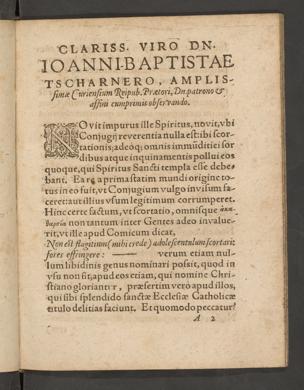 CLARISS. VIRO DN.
IOANNI-BAPTISTAE
TSCHARNERO, AMPLIS-
simæ Curiensium Reipub. Prætori, Dn. patrono &
affini cumprimis observando.
NOvit impurus ille Spiritus, novit, vbi
Conjugij reverentia nulla est: ibi scor-
tationis; adeoq; omnis immūditiei sor
dibus atque inquinamentis pollui eos
quoque, qui Spiritus Sancti templa esse debe-
bant. Ea re a prima statim mundi origine to-
tus in eo fuit, vt Conjugium vulgo invisum fa-
ceret: aut illius vsum legitimum corrumperet.
Hinc certe factum, vt scortatio, omnisque
non tantum inter Gentes adeo invalue-
rit, vt ille apud Comicum dicat,
Non est flagitium (mihi crede) adolescentulum scortari:
fores effringere: —— verum etiam nul-
lum libidinis genus nominari possit, quod in
vsu non sit, apud eos etiam, qui nomine Chri-
stiano gloriantur, præsertim vero apud illos,
qui sibi splendido sanctæ Ecclesiæ Catholicæ
titulo delitias faciunt. Et quomodo peccatur?
A 2